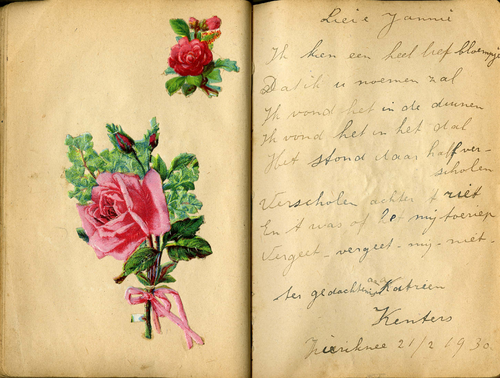 Lieve Jannie
Ik ken een heel lief bloempje
Dat ik u noemen zal
Ik vond het in de duinen
Ik vond het in het dal
Het stond daar half ver-
scholen
Verscholen achter 't riet
En 't was of ze mij toeriep
Vergeet - vergeet - mij - niet -
ter gedachtenis aan Katreen
Kenters
21/2 1930.